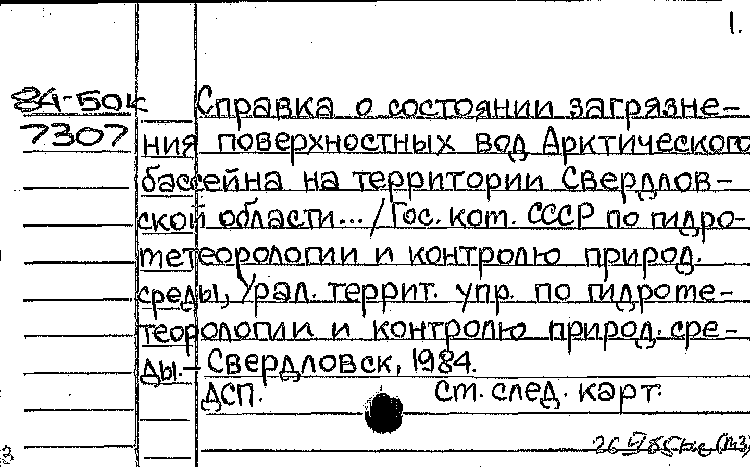 1.
84-50к Справка о состоянии загрязне-
7307 ния поверхностных вод Арктического
бассейна на территории Свердлов-
ской области... /Гос. ком. СССР по гидро-
метеорологии и контролю природ.
среды, Урал. террит. упр. по гидроме-
теорологии и контролю природ. сре-
ды.- Свердловск, 1984.
ДСП. См. след. карт.
26